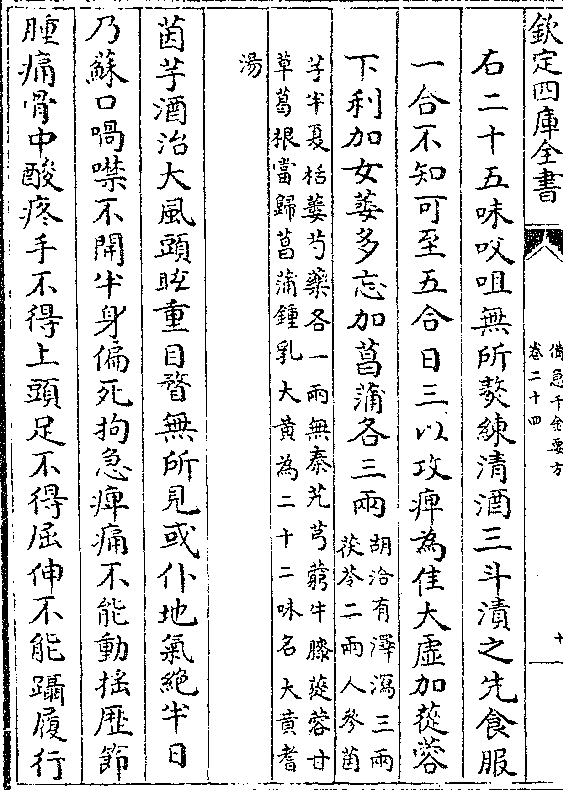 欽定四庫全書
備急千金要方
卷二十四
十
右二十五味㕮咀無所熬練清酒三斗漬之先食服
一合不知可至五合日三以攻痺為佳大虛加蓯蓉
下利加女萎多忘加菖蒲各三兩胡洽有澤瀉三兩
茯苓二兩人參茵
芋半夏栝蔞芍藥各一兩無秦艽芎藭牛膝蓯蓉甘
草葛根當歸菖蒲鍾乳大黃為二十二味名大黃耆
湯
茵芋酒治大風頭眩重目瞀無所見或仆地氣絶半日
乃蘇口喎噤不開半身偏死拘急痺痛不能動揺歴節
腫痛骨中酸疼手不得上頭足不得屈伸不能躡履行